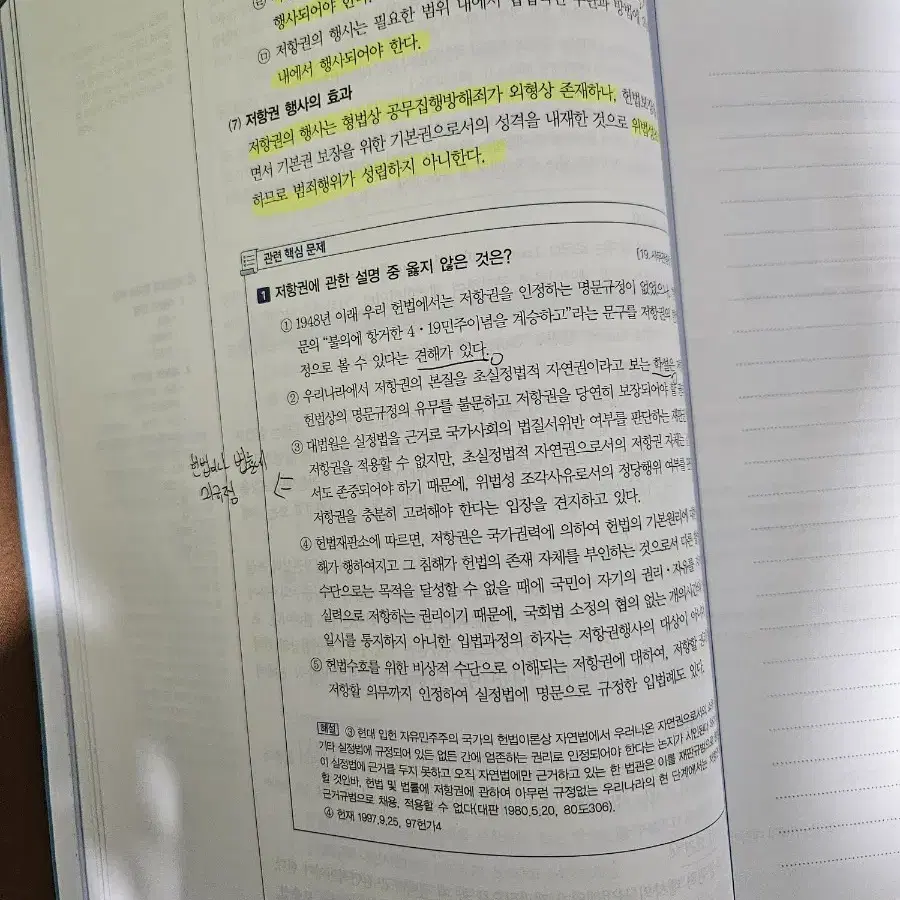 행사되어야 한다.
㉤ 저항권의 행사는 필요한 범위 내에서
내에서 행사되어야 한다.
(7) 저항권 행사의 효과
저항권의 행사는 형법상 공무집행방해죄가 외형상 존재하나, 헌법보장
면서 기본권 보장을 위한 기본권으로서의 성격을 내재한 것으로 위법성
하므로 범죄행위가 성립하지 아니한다.
관련 핵심 문제
1 저항권에 관한 설명 중 옳지 않은 것은? [19.
① 1948년 이래 우리 헌법에서는 저항권을 인정하는 명문규정이 없었으나,
문의 “불의에 항거한 4·19민주이념을 계승하고”라는 문구를 저항권의
정으로 볼 수 있다는 견해가 있다.
② 우리나라에서 저항권의 본질을 초실정법적 자연권이라고 보는 학설은
헌법상의 명문규정의 유무를 불문하고 저항권을 당연히 보장되어야
③ 대법원은 실정법을 근거로 국가사회의 법질서위반 여부를 판단하는
저항권을 적용할 수 없지만, 초실정법적 자연권으로서의 저항권 자체는
서도 존중되어야 하기 때문에, 위법성 조각사유로서의 정당행위 여부를
저항권을 충분히 고려해야 한다는 입장을 견지하고 있다.
④ 헌법재판소에 따르면, 저항권은 국가권력에 의하여 헌법의 기본원리에
해가 행하여지고 그 침해가 헌법의 존재 자체를 부인하는 것으로서 다른
수단으로는 목적을 달성할 수 없을 때에 국민이 자기의 권리·자유를
실력으로 저항하는 권리이기 때문에, 국회법 소정의 협의 없는 개의시간의
일시를 통지하지 아니한 입법과정의 하자는 저항권행사의 대상이 아니
⑤ 헌법수호를 위한 비상적 수단으로 이해되는 저항권에 대하여, 저항할
저항할 의무까지 인정하여 실정법에 명문으로 규정한 입법례도 있다.
해설 ③ 현대 입헌 자유민주주의 국가의 헌법이론상 자연법에서 우러나온 자연권으로서의
기타 실정법에 규정되어 있든 없든 간에 엄존하는 권리로 인정되어야 한다는 논지가 시인된다
이 실정법에 근거를 두지 못하고 오직 자연법에만 근거하고 있는 한 법관은 이를 재판규범으로
할 것인바, 헌법 및 법률에 저항권에 관하여 아무런 규정없는 우리나라의 현 단계에서는
근거규범으로 채용, 적용할 수 없다(대판 1980.5.20, 80도306).
④ 헌재 1997.9.25, 97헌가4